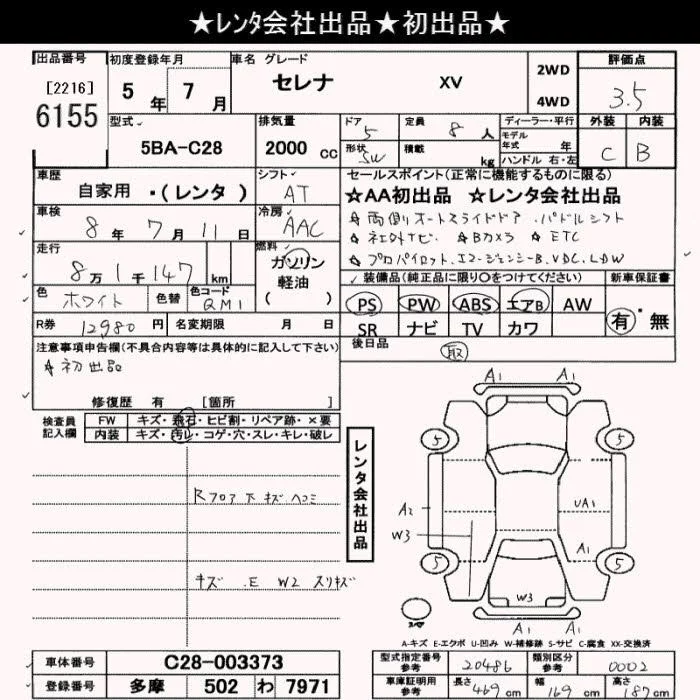 ★レンタ会社出品★初出品★
出品番号 初度登録年月 車名 グレード 2WD 4WD 評価点
[2216]
6155
5年 7月
セレナ XV
3.5
型式 排気量 ドア 定員 ディーラー・平行 外装 内装
5BA-C28 2000cc 5 8人 モデル年式 年 C B
形状 SW 積載 kg ハンドル 右・左
車歴 シフト セールスポイント(正常に機能するものに限る)
自家用 ・(レンタ) AT ☆AA初出品 ☆レンタ会社出品
車検 8年 7月 11日 冷房 AAC
☆両側オートスライドドア .パドルシフト
☆社外ナビ. ☆Bカメラ ☆ETC
☆プロパイロット.エマージェンシーB.VDC.LDW
走行 8万1千147km 燃料 ガソリン 軽油 ( )
装備品(純正品に限り〇をつけてください) 新車保証書
色 ホワイト 色替 色コード QM1
PS PW ABS エアB AW 有・無
SR ナビ TV カワ
R券 12980円 名変期限 月 日
後日品 取
注意事項申告欄(不具合内容等は具体的に記入して下さい)
☆初出品
修復歴 有 [箇所 ]
検査員記入欄 FW キズ・飛石・ヒビ割・リペア跡・×要
内装 キズ・汚レ・コゲ・穴・スレ・キレ・破レ
レンタ会社出品
Rフロア下キズヘコミ
キズ .E W2 スリキズ
A1 A1
5 5
A2 UA1
W3
A1
5 5
W3
A1 A1
A-キズ E-エクボ U-凹み W-補修跡 S-サビ C-腐食 XX-交換済
車体番号 C28-003373
型式指定番号参考 20486 類別区分参考 0002
登録番号 多摩 502 わ 7971
車庫証明用参考 長さ 469cm 幅 169cm 高さ 187cm